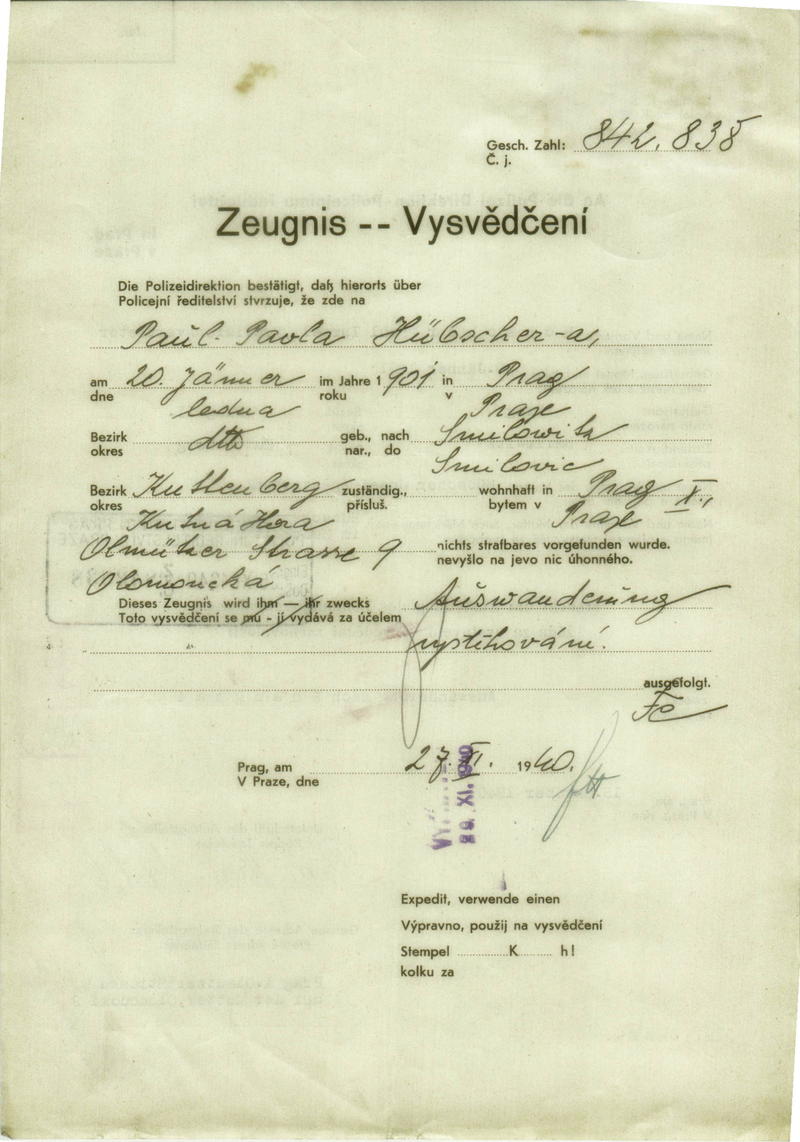 Gesch. Zahl: 842.838
Č. j.
Zeugnis -- Vysvědčení
Die Polizeidirektion bestätigt, daß hierorts über
Policejní ředitelství stvrzuje, že zde na
Paul - Pavla Hübscher-a,
am 20. Jänner im Jahre 1901 in Prag
dne ledna roku v Praze
Bezirk dtto geb., nach Smilowitz
okres nar., do Smilovic
Bezirk Kuttenberg zuständig., wohnhaft in Prag X.,
okres Kutná Hora přísluš. bytem v Praze
Olmützer Strasse 9 nichts strafbares vorgefunden wurde.
Olomoucká nevyšlo na jevo nic úhonného.
Dieses Zeugnis wird ihm — ihr zwecks Auswanderung
Toto vysvědčení se mu - jí vydává za účelem
vystěhování.
ausgefolgt.
Prag, am 27. XI. 1940.
V Praze, dne
29. XI. 1940
Expedit, verwende einen
Výpravno, použij na vysvědčení
Stempel K h!
kolku za